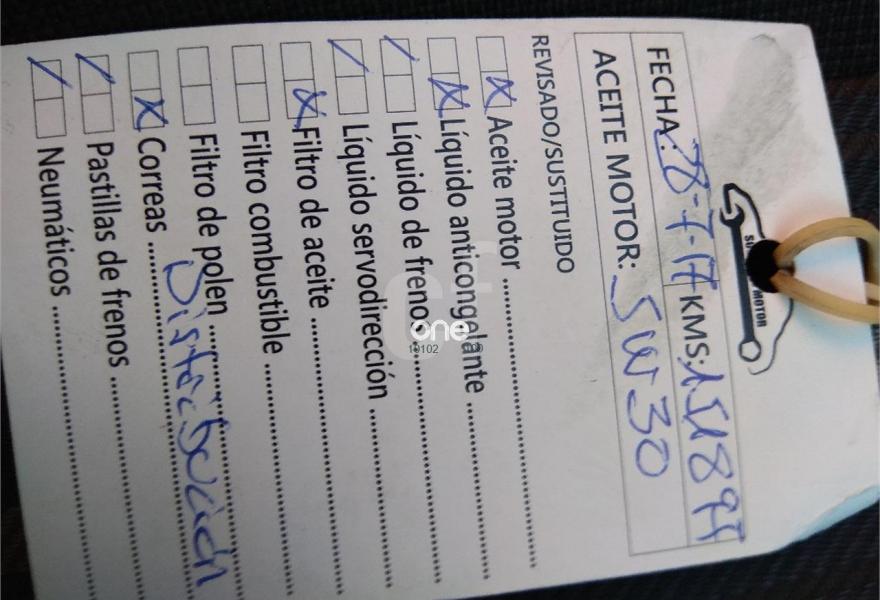 MOTOR
FECHA: 28-7-17 KMS: 151897
ACEITE MOTOR: 5W30
REVISADO/SUSTITUIDO
X Aceite motor
X Líquido anticongelante
/ Líquido de frenos
/ Líquido servodirección
X Filtro de aceite
Filtro combustible
Filtro de polen
X Correas Distribución
/ Pastillas de frenos
/ Neumáticos
cf
one
10102